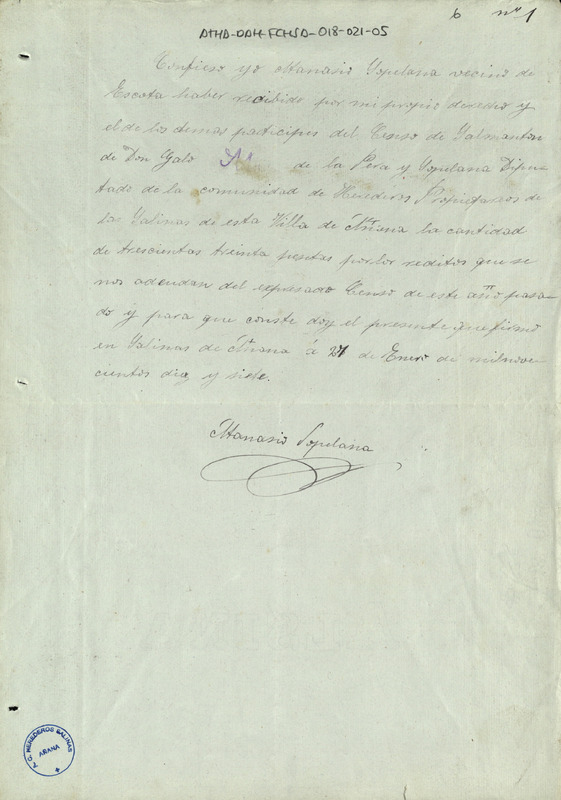 ATHA-DAH-FCHSA-018-021-05
6 nº 1
Confieso yo Atanasio Sopelana vecino de
Escota haber recibido por mi propio derecho y
el de los demas participes del Censo de Salmanton
de Don Galo de la Pera y Sopelana Dipu-
tado de la comunidad de Herederos Propietarios de
las Salinas de esta Villa de Añana la cantidad
de trescientas treinta pesetas por los reditos que se
nos adeudan del expresado Censo de este año pasa-
do y para que conste doy el presente que firmo
en Salinas de Añana á 27 de Enero de mil nove
cientos diez y siete.
Atanasio Sopelana
C. HEREDEROS SALINAS
AÑANA